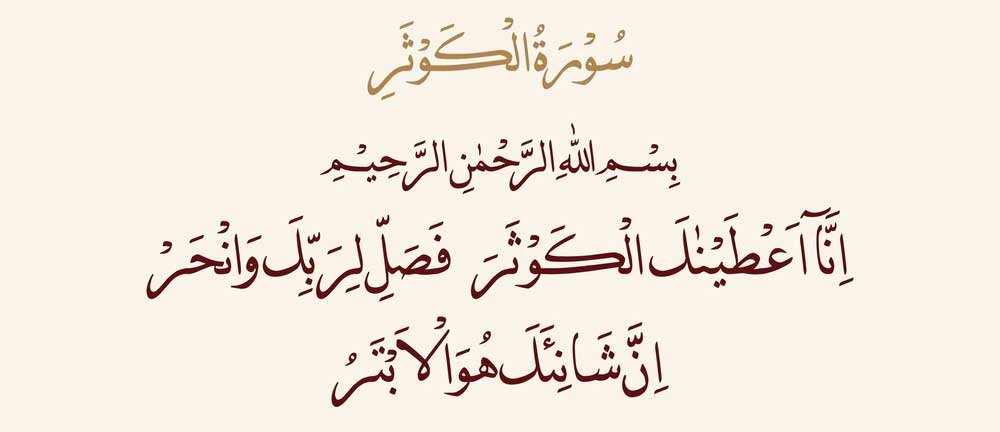 سُوْرَةُ الْكَوْثَرِ
بِسْمِ اللّٰهِ الرَّحْمٰنِ الرَّحِيْمِ
اِنَّآ اَعْطَيْنٰكَ الْكَوْثَرَ فَصَلِّ لِرَبِّكَ وَانْحَرْ
اِنَّ شَانِئَكَ هُوَ الْاَبْتَرُ